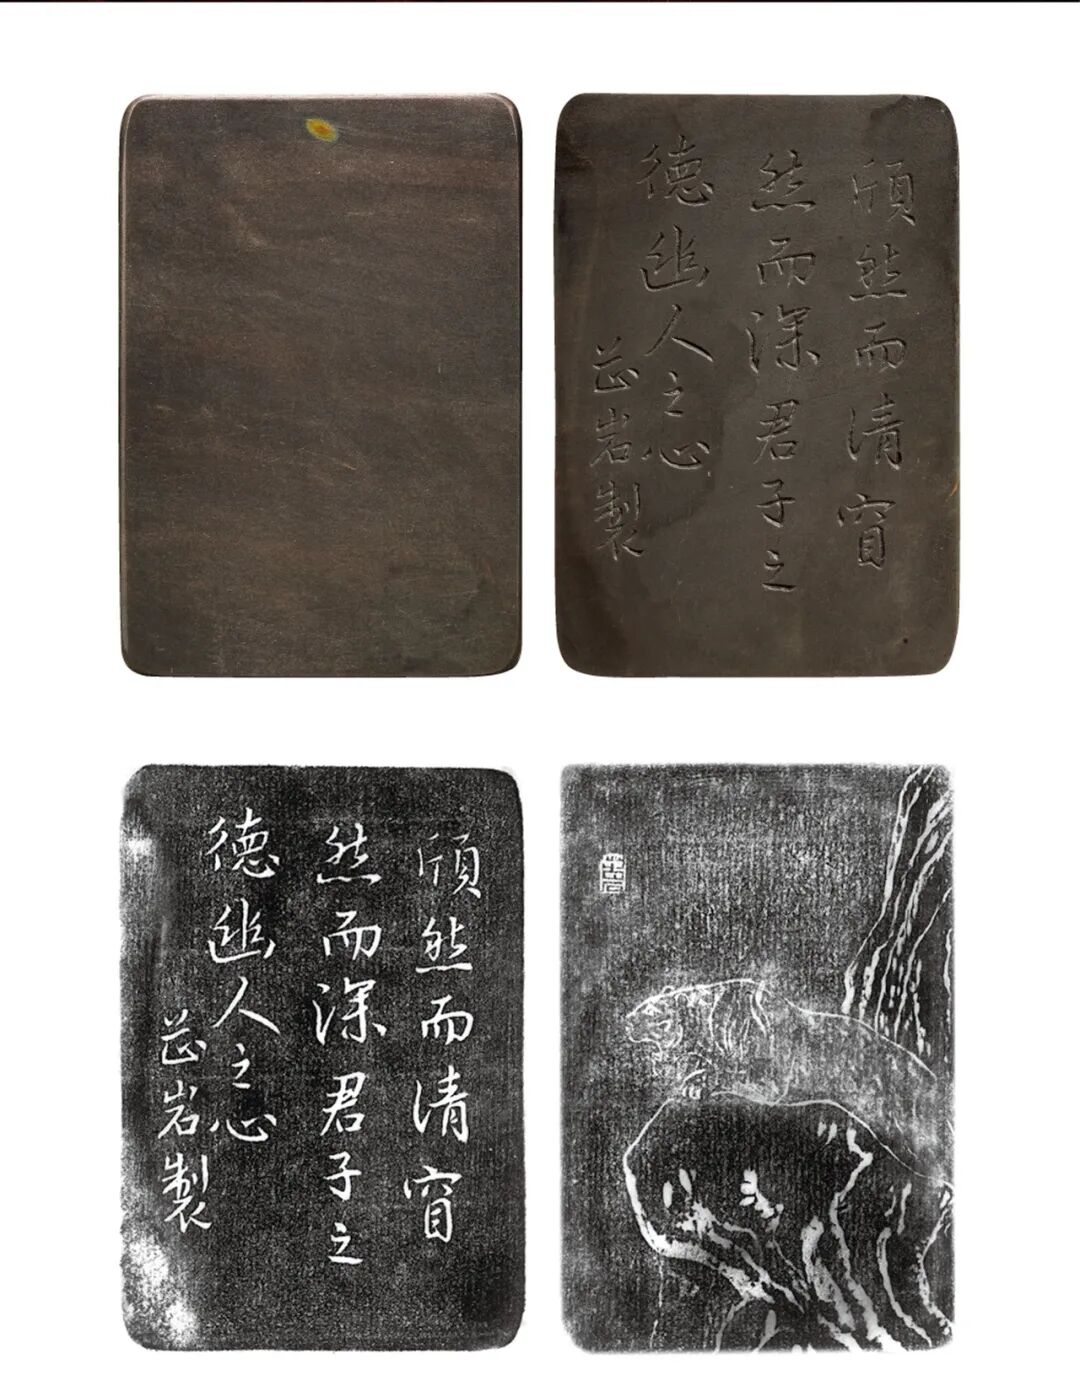 頎然而清窅
然而深君子之
德幽人之心
芷岩製
頎然而清窅
然而深君子之
德幽人之心
芷岩製